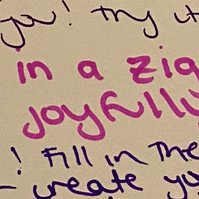 you! try it
in a zig
joyfully
! Fill in the
- create you